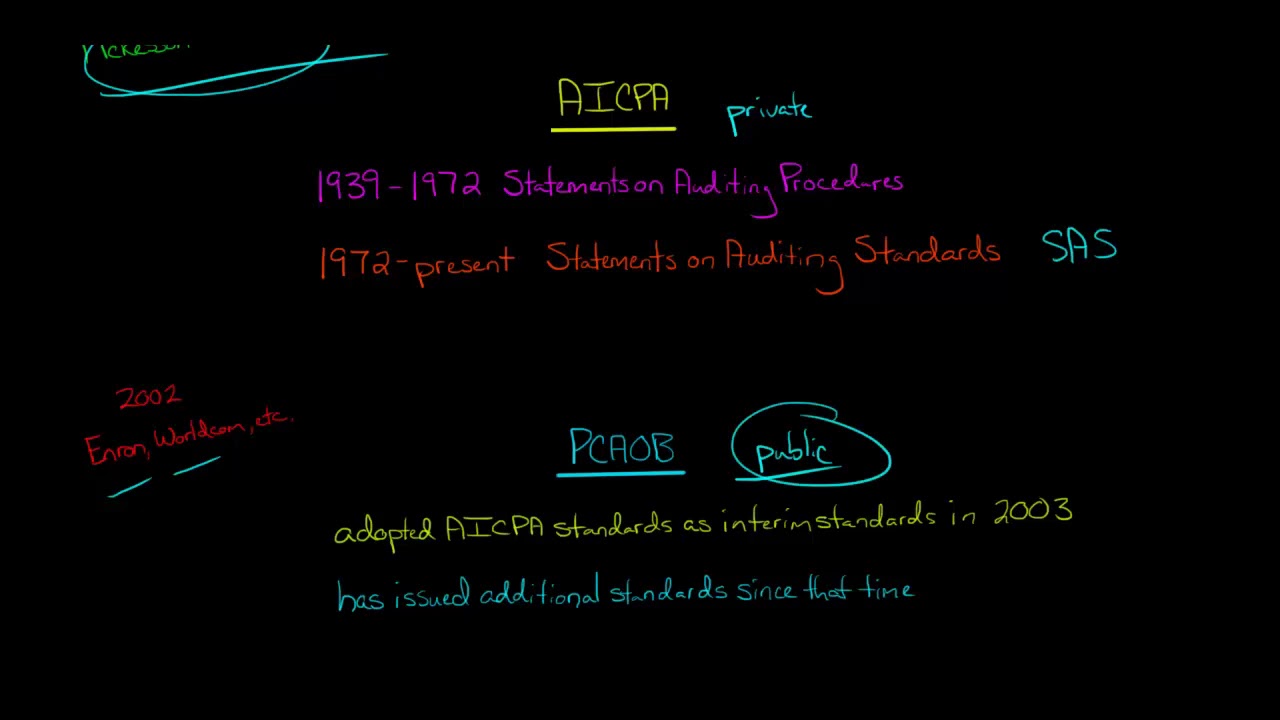 AICPA private
1939-1972 Statements on Auditing Procedures
1972-present Statements on Auditing Standards SAS
2002
Enron, Worldcom, etc.
PCAOB public
adopted AICPA standards as interim standards in 2003
has issued additional standards since that time